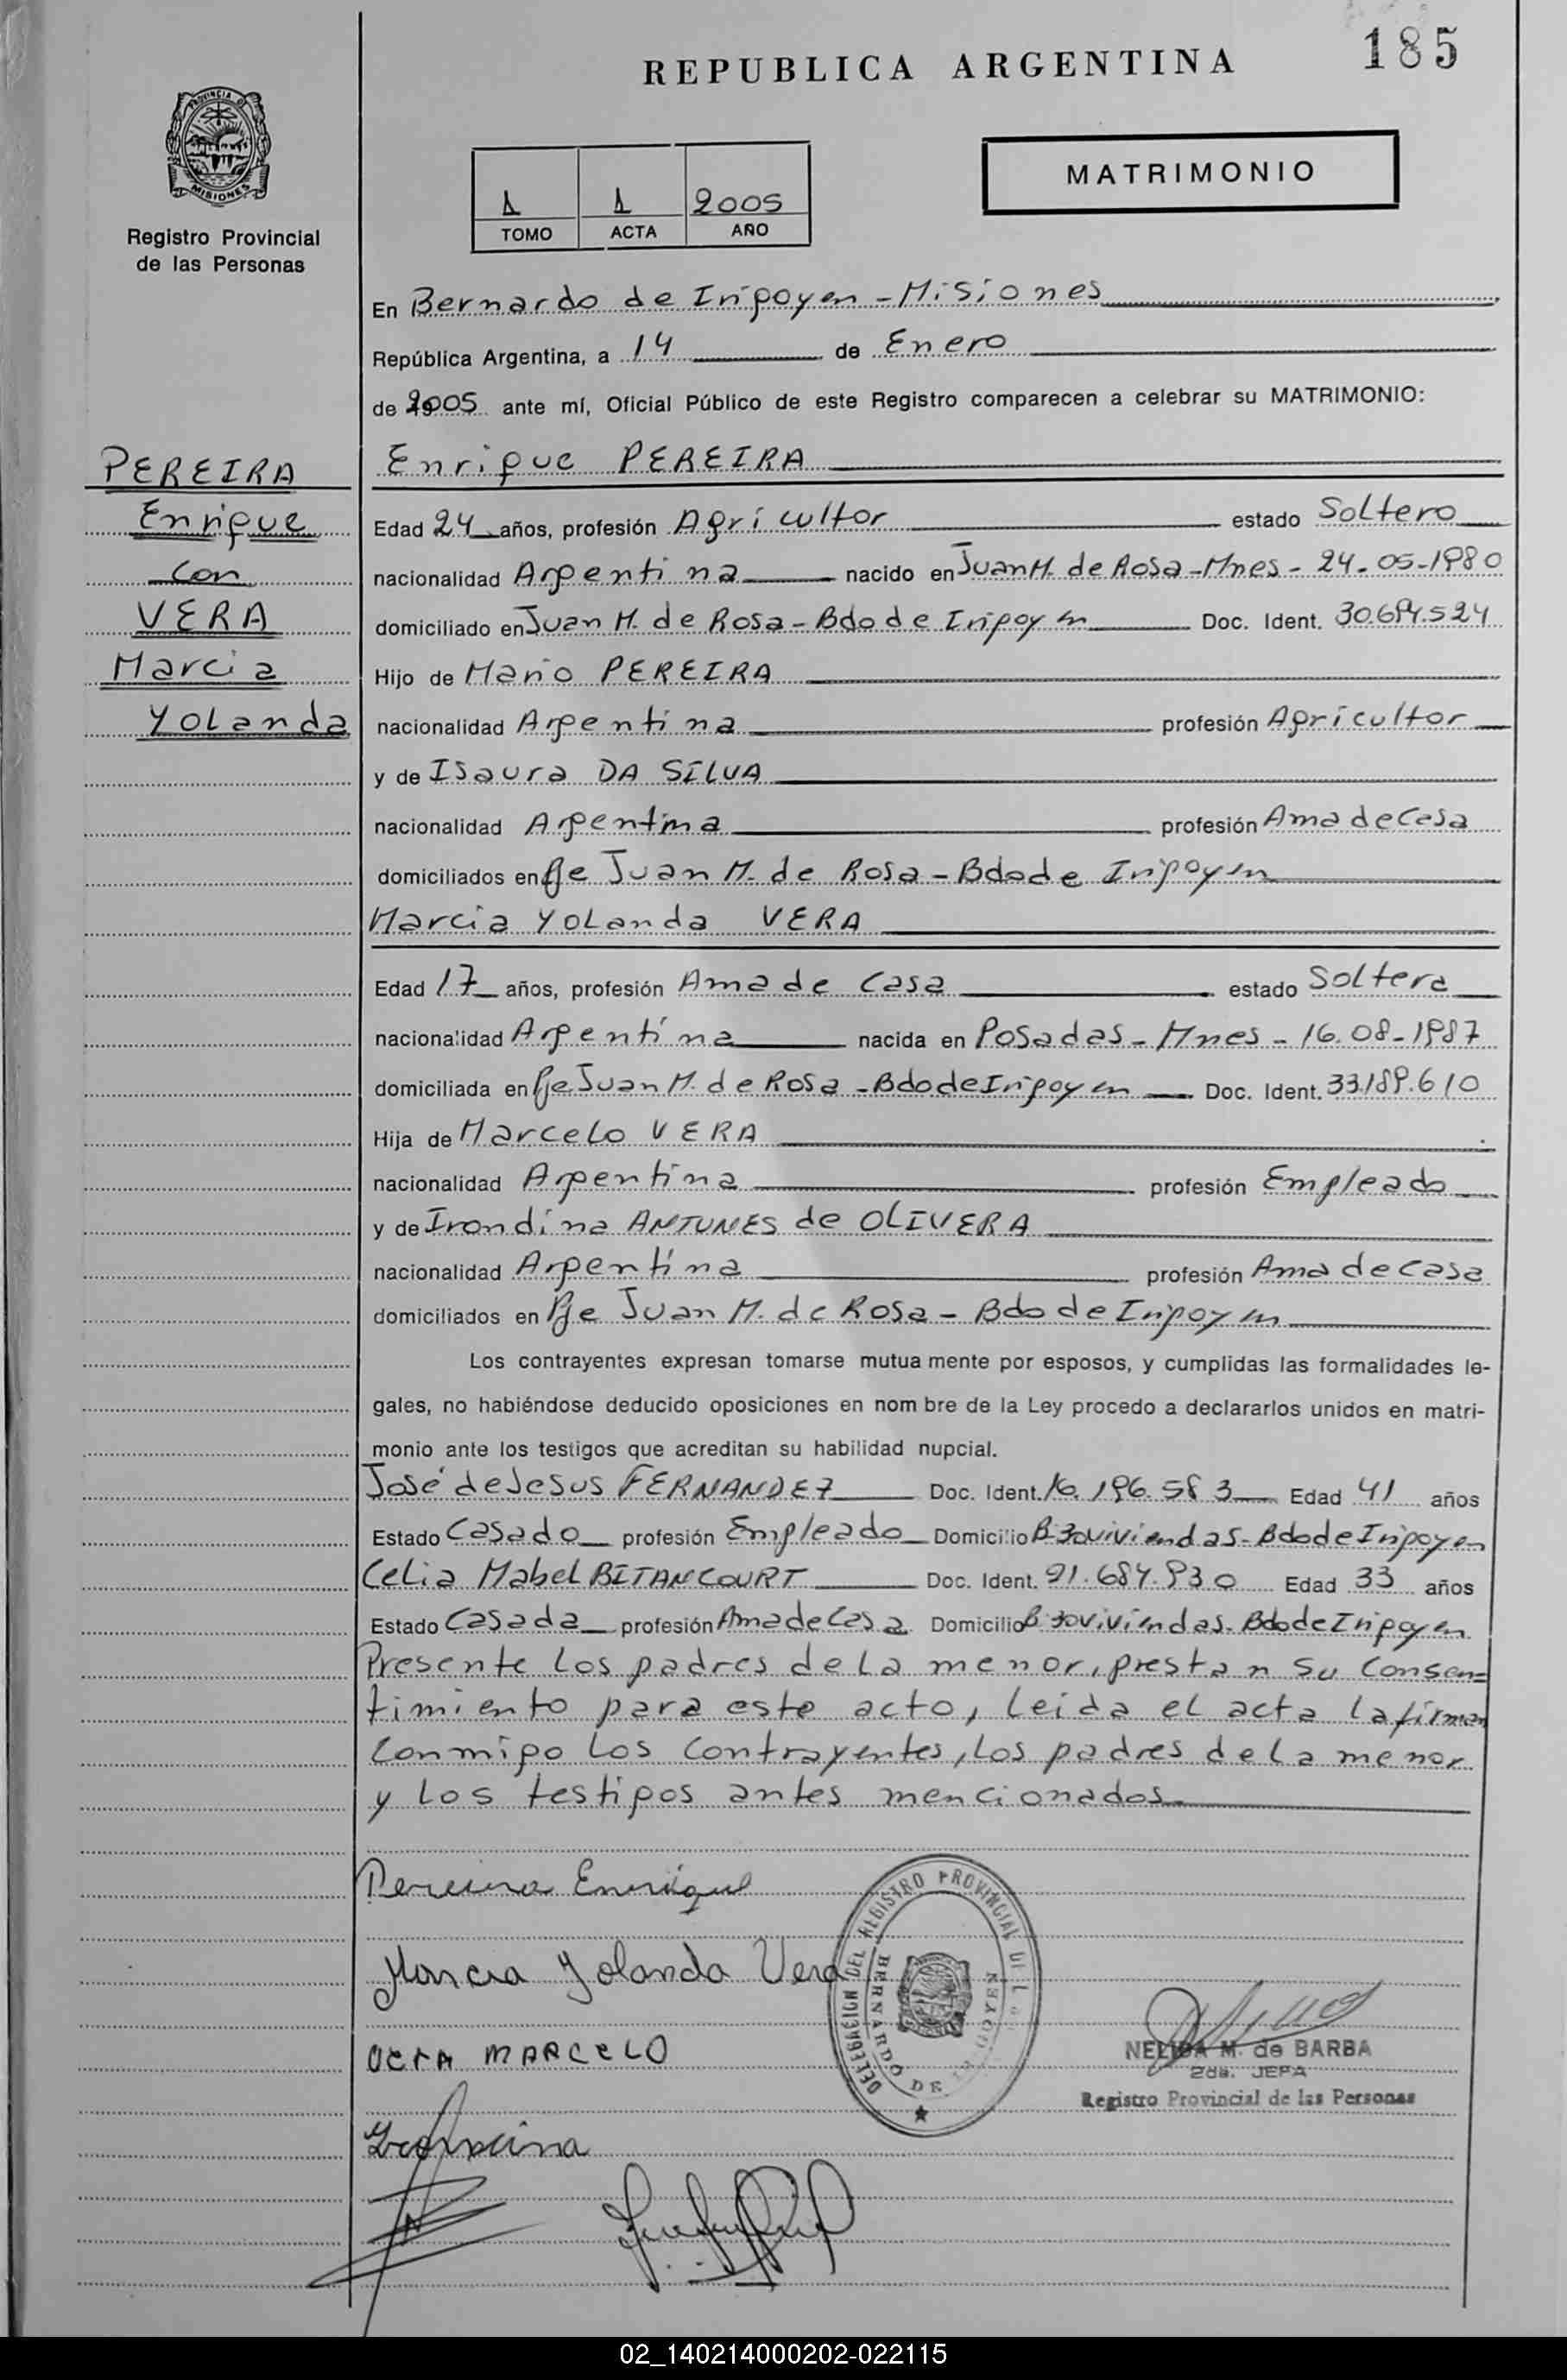 REPUBLICA ARGENTINA
185
PROVINCIA DE
MISIONES
Registro Provincial
de las Personas
1 1 2005
TOMO ACTA AÑO
MATRIMONIO
En Bernardo de Irigoyen - Misiones
República Argentina, a 14 de Enero
de 2005 ante mí, Oficial Público de este Registro comparecen a celebrar su MATRIMONIO:
PEREIRA
Enrique
con
VERA
Marcia
Yolanda
Enrique PEREIRA
Edad 24 años, profesión Agricultor estado Soltero
nacionalidad Argentina nacido en Juan M. de Rosa - Mnes - 24-05-1980
domiciliado en Juan M. de Rosa - Bdo de Irigoyen Doc. Ident. 30.694.524
Hijo de Mario PEREIRA
nacionalidad Argentina profesión Agricultor
y de Isaura DA SILVA
nacionalidad Argentina profesión Ama de Casa
domiciliados en Pje Juan M. de Rosa - Bdo de Irigoyen
Marcia Yolanda VERA
Edad 17 años, profesión Ama de Casa estado Soltera
nacionalidad Argentina nacida en Posadas - Mnes - 16-08-1987
domiciliada en Pje Juan M. de Rosa - Bdo de Irigoyen Doc. Ident. 33.189.610
Hija de Marcelo VERA
nacionalidad Argentina profesión Empleado
y de Irondina ANTUNES de OLIVERA
nacionalidad Argentina profesión Ama de Casa
domiciliados en Pje Juan M. de Rosa - Bdo de Irigoyen
Los contrayentes expresan tomarse mutua mente por esposos, y cumplidas las formalidades le-
gales, no habiéndose deducido oposiciones en nom bre de la Ley procedo a declararlos unidos en matri-
monio ante los testigos que acreditan su habilidad nupcial.
José de Jesus FERNANDEZ Doc. Ident. Edad 41 años
Estado Casado profesión Empleado Domicilio B- 30 viviendas - Bdo de Irigoyen
Celia Mabel BITANCOURT Doc. Ident. Edad 33 años
Estado Casada profesión Ama de Casa Domicilio B- 30 viviendas - Bdo de Irigoyen
Presente los padres de la menor, prestan su consen=
timiento para este acto, leida el acta la firman
conmigo los contrayentes, los padres de la menor
y los testigos antes mencionados
Pereira Enrique
Marcia Yolanda Vera
VERA MARCELO
DELEGACION DEL REGISTRO PROVINCIAL DE
BERNARDO DE IRIGOYEN
NELIDA M. de BARBA
2da. JEFA
Registro Provincial de las Personas
02_140214000202-022115